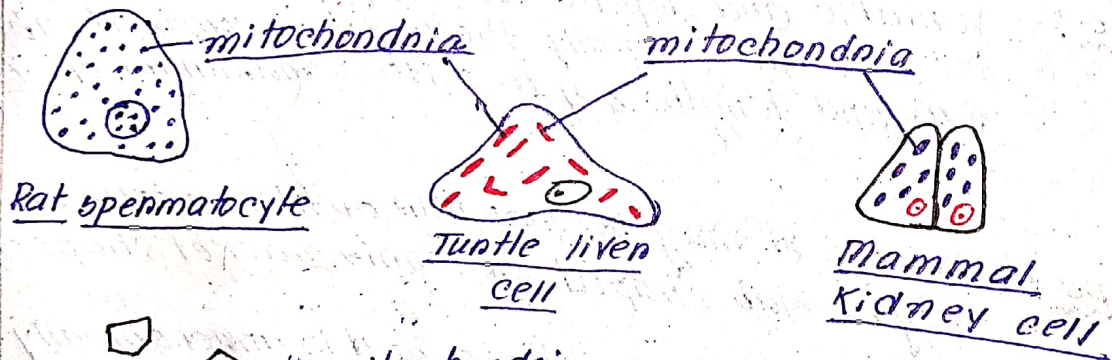 mitochondria
mitochondria
Rat spermatocyte
Turtle liver
cell
Mammal
Kidney cell